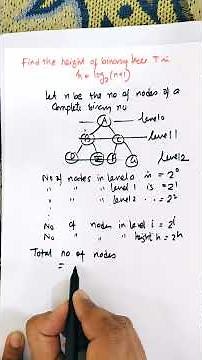 Find the height of binary tree T is
h = log₂(n+1)
Let n be the no of nodes of a
Complete binary
A level 0
B C level 1
D E F G level 2
No of nodes in level 0 is = 2⁰
" " " level 1 is = 2¹
" " " level 2 = 2²
No of nodes in level i = 2ⁱ
No " " " height h = 2h
Total no of nodes
=